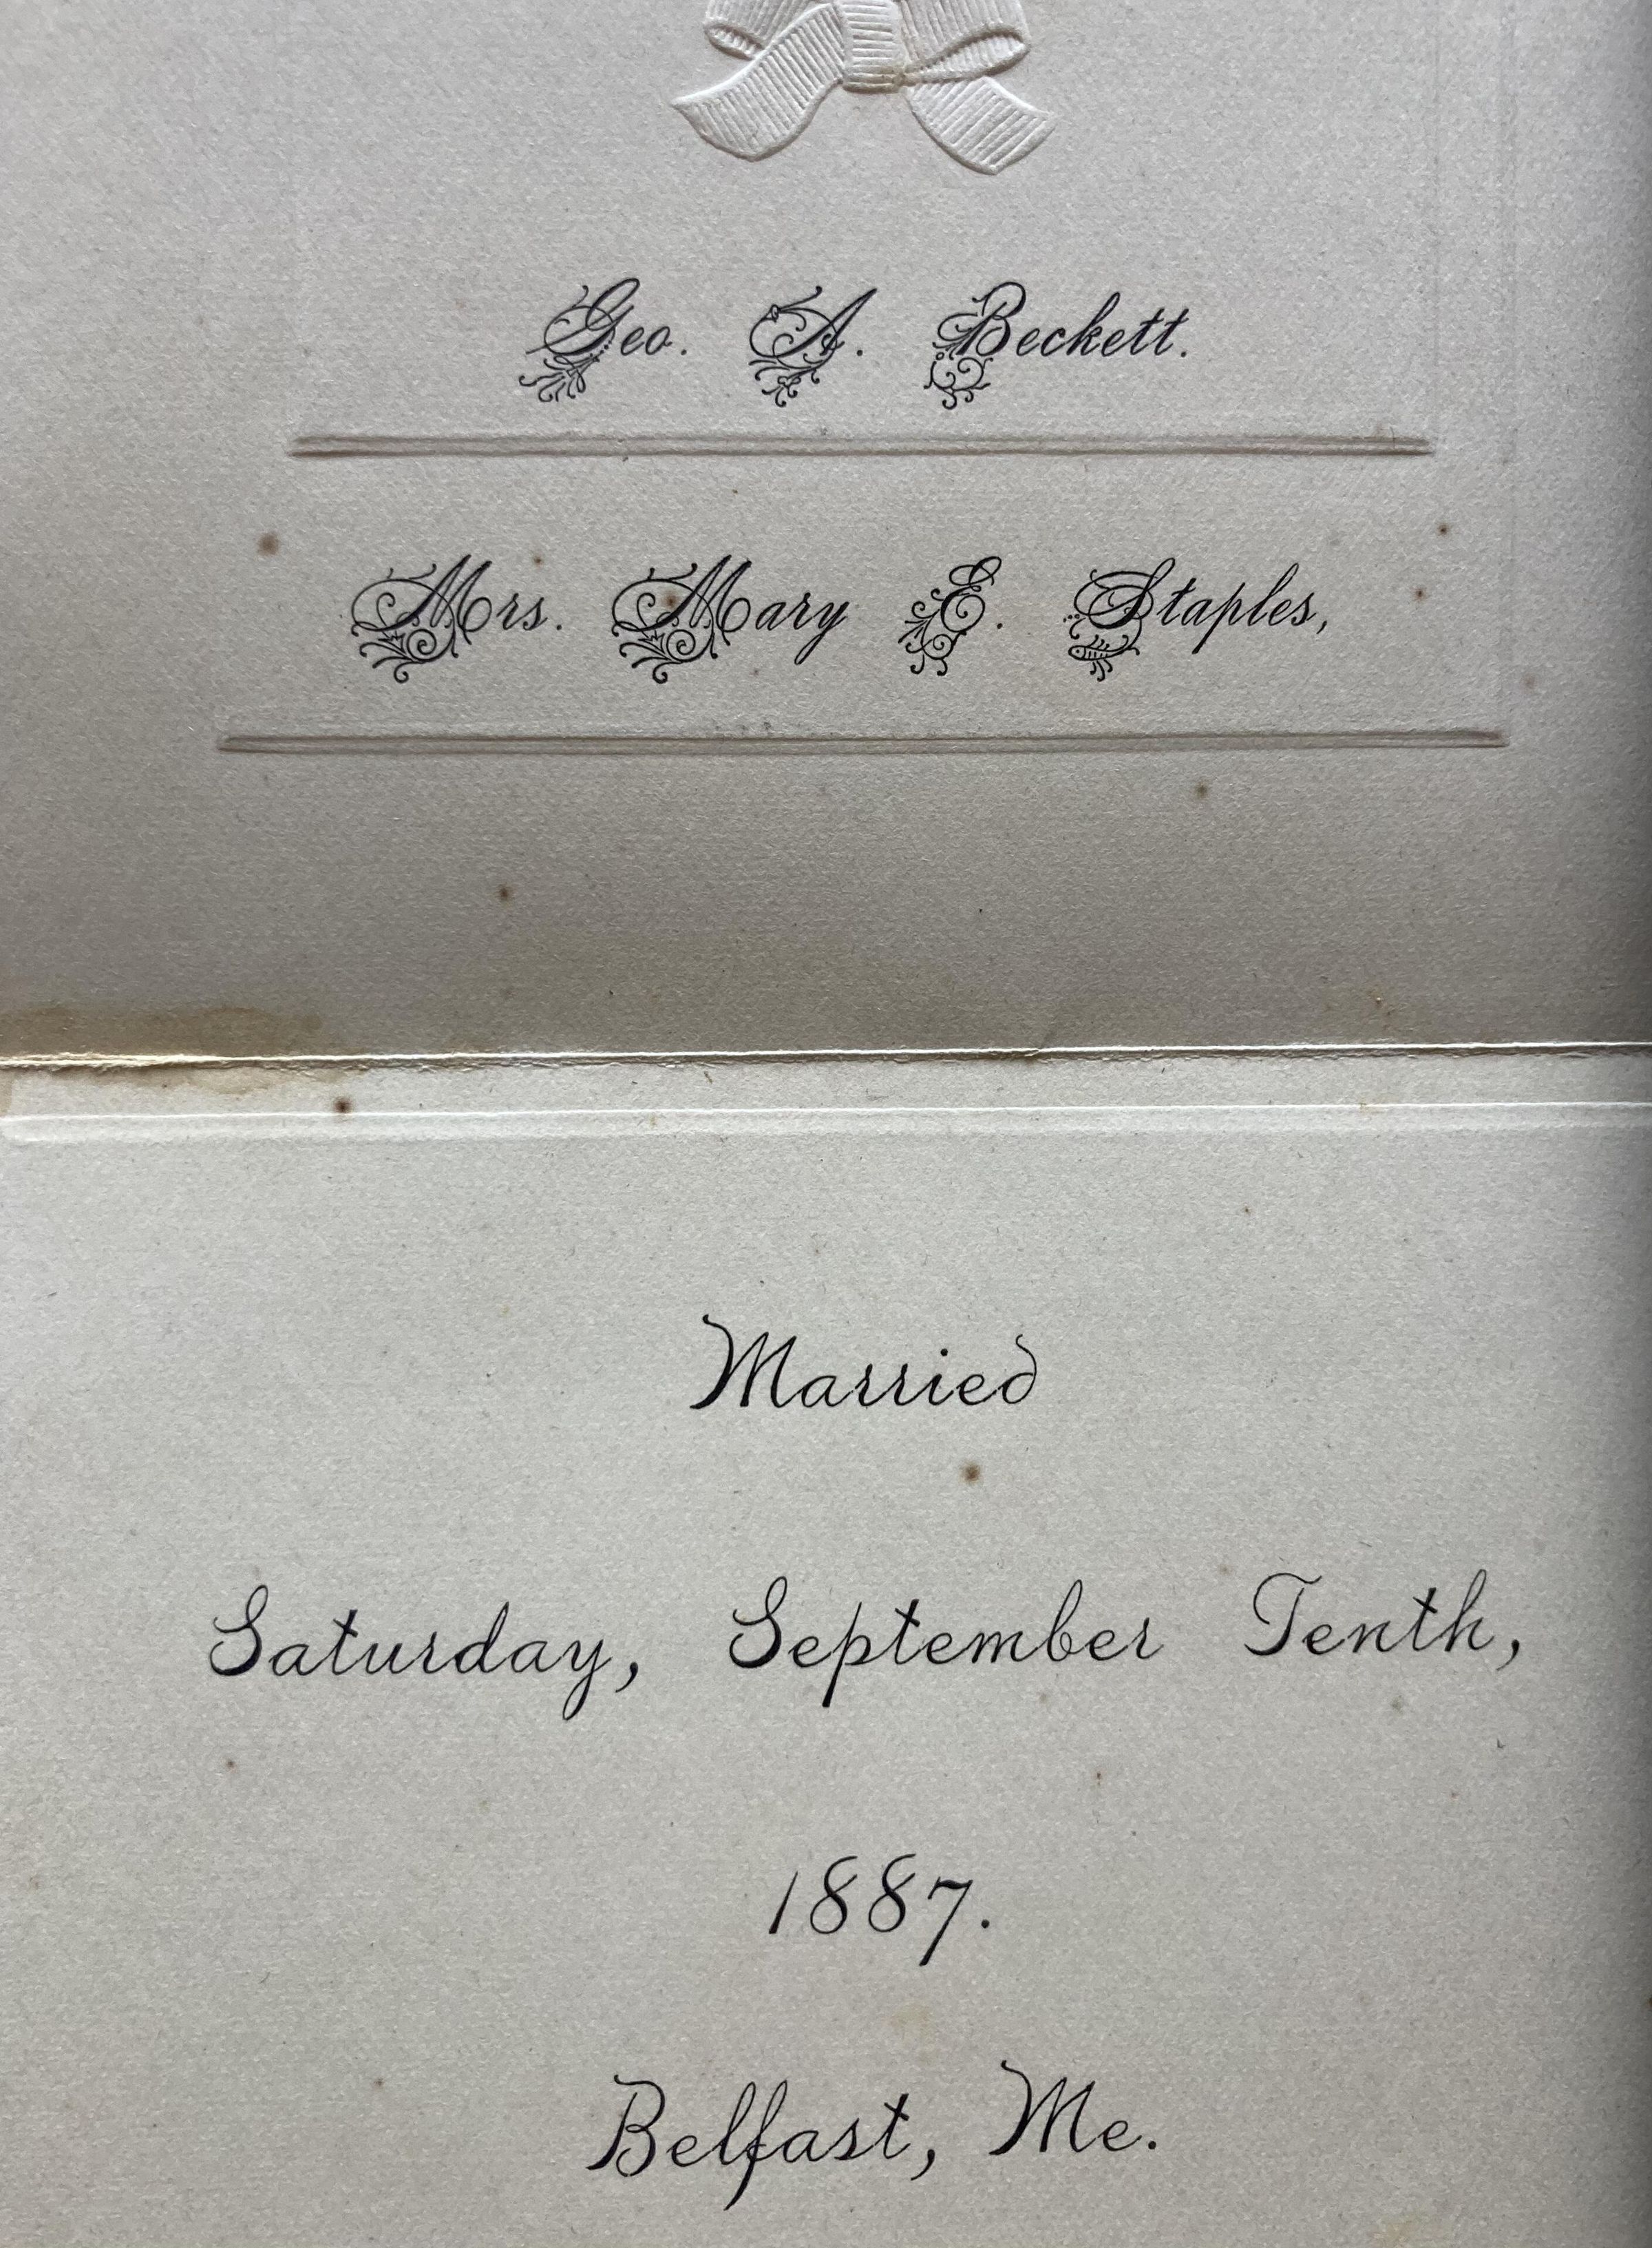 Geo. A. Beckett.
Mrs. Mary E. Staples,
Married
Saturday, September Tenth,
1887.
Belfast, Me.